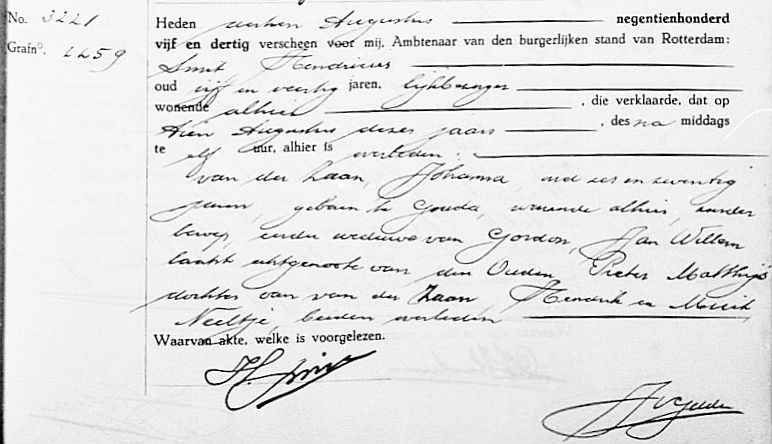 No. 3221
Grafno. LL59
Heden dertien Augustus negentienhonderd
vijf en dertig verscheen voor mij, Ambtenaar van den burgerlijken stand van Rotterdam:
Smit Hendricus
oud vijf en veertig jaren, lijkbezorger
wonende alhier, die verklaarde, dat op
tien Augustus dezes jaars, des na middags
te elf uur, alhier is overleden:
van der Laan, Johanna, oud zes en zeventig
jaren, geboren te Gouda, wonende alhier, zonder
beroep, eerder weduwe van Gordon, Jan Willem
laatst echtgenoote van den Ouden, Pieter Matthijs
dochter van van der Laan, Hendrik en
Neeltje, beiden overleden
Waarvan akte, welke is voorgelezen.
HSmit